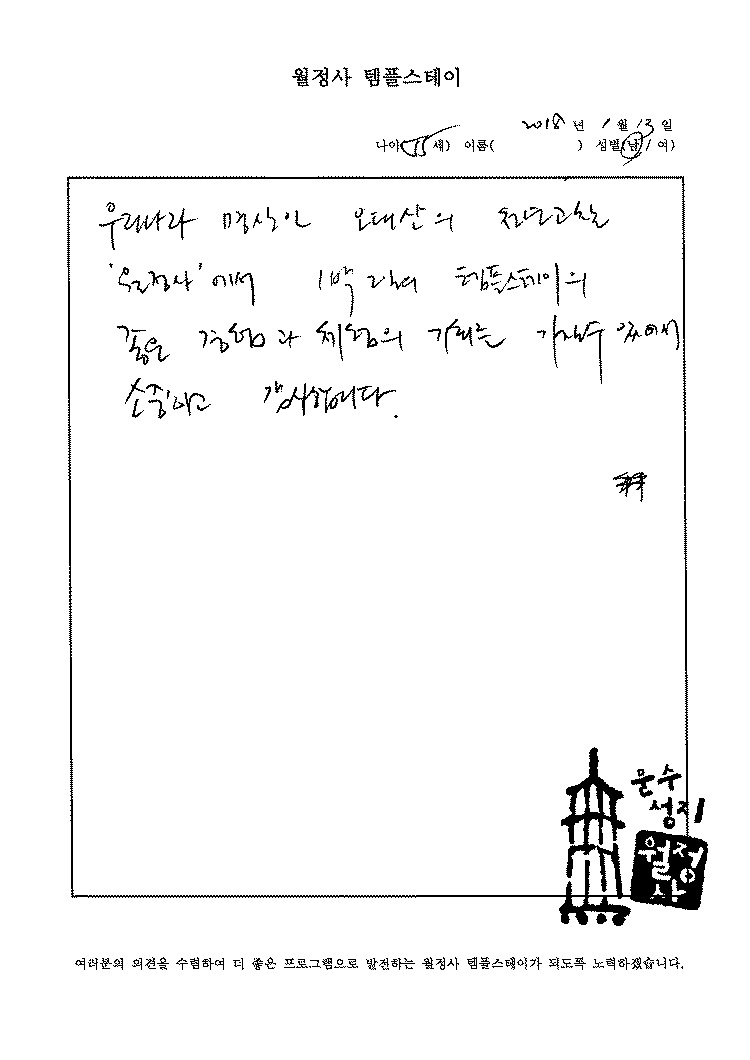 월정사 템플스테이
2018 년 1 월 13 일
나이( 55 세) 이름( ) 성별(남/여)
우리나라 명산인 오대산의 천년고찰
'월정사'에서 1박2일의 템플스테이의
좋은 경험과 체험의 기회를 가질수 있어서
소중하고 감사합니다.
문수
성지
월정
사
여러분의 의견을 수렴하여 더 좋은 프로그램으로 발전하는 월정사 템플스테이가 되도록 노력하겠습니다.